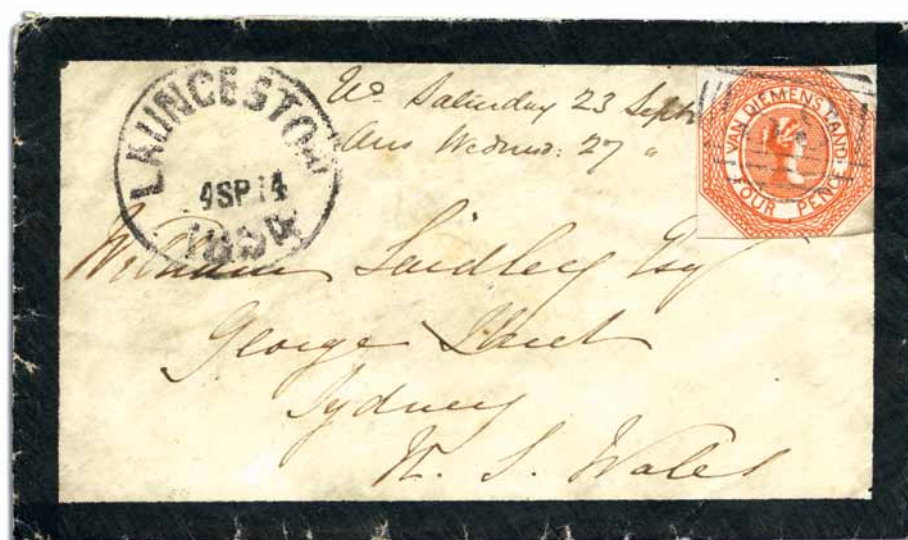 LAUNCESTON
4SP14
1854
Saturday 23 Septr
Ans Wednes: 27 "
VAN DIEMENS LAND
FOUR PENCE
William Laidley Esq
George Street
Sydney
N. S. Wales